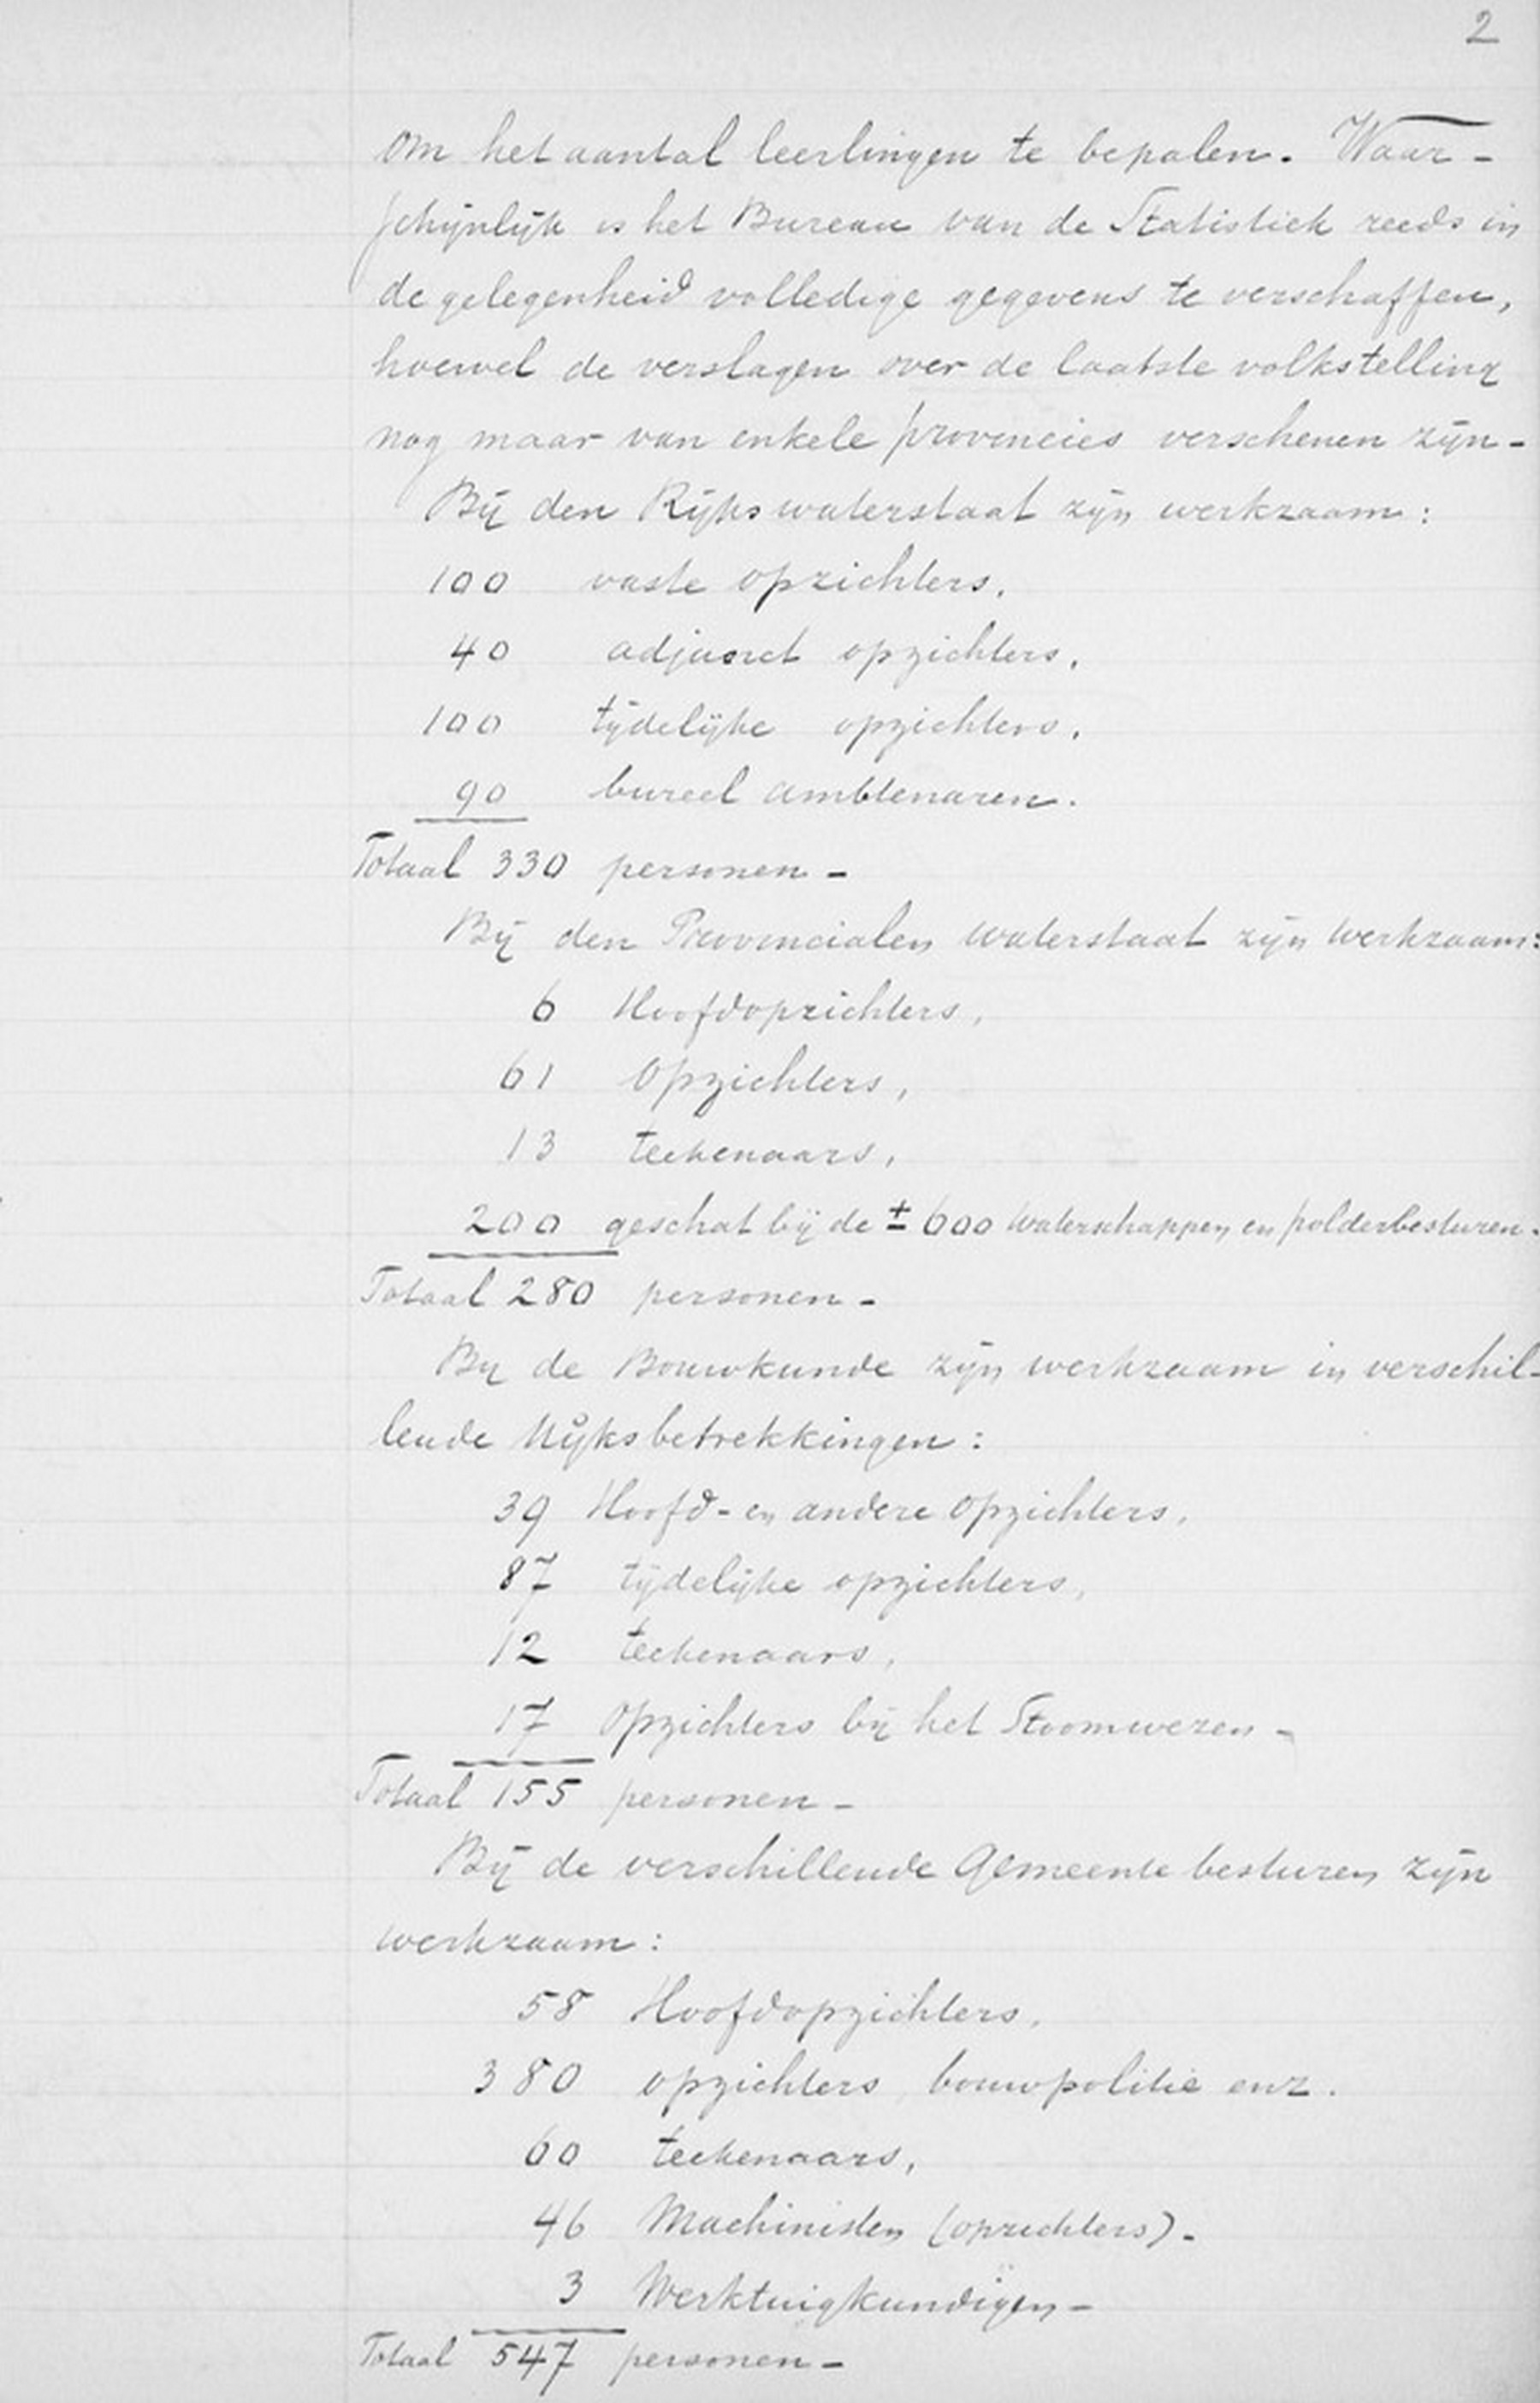 2
om het aantal leerlingen te bepalen. Waar-
schijnlijk is het Bureau van de Statistiek reeds in
de gelegenheid volledige gegevens te verschaffen,
hoewel de verslagen over de laatste volkstelling
nog maar van enkele provincies verschenen zijn -
Bij den Rijkswaterstaat zijn werkzaam:
100 vaste opzichters.
40 adjunct opzichters.
100 tijdelijke opzichters.
90 bureel ambtenaren.
Totaal 330 personen -
Bij den Provincialen waterstaat zijn werkzaam:
6 Hoofdopzichters,
61 Opzichters,
13 teekenaars,
200 geschat bij de ± 600 waterschappen en polderbesturen.
Totaal 280 personen -
Bij de Bouwkunde zijn werkzaam in verschil-
lende Rijksbetrekkingen:
39 Hoofd- en andere opzichters,
87 tijdelijke opzichters,
12 teekenaars,
17 Opzichters bij het Stoomwezen -
Totaal 155 personen -
Bij de verschillende Gemeente besturen zijn
werkzaam:
58 Hoofdopzichters,
380 opzichters, bouwpolitie enz.
60 teekenaars,
46 Machinisten (opzichters) -
3 Werktuigkundigen -
Totaal 547 personen -